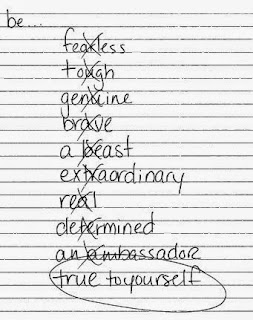 be...
fearless
tough
genuine
brave
a beast
extraordinary
real
determined
an ambassador
true to yourself